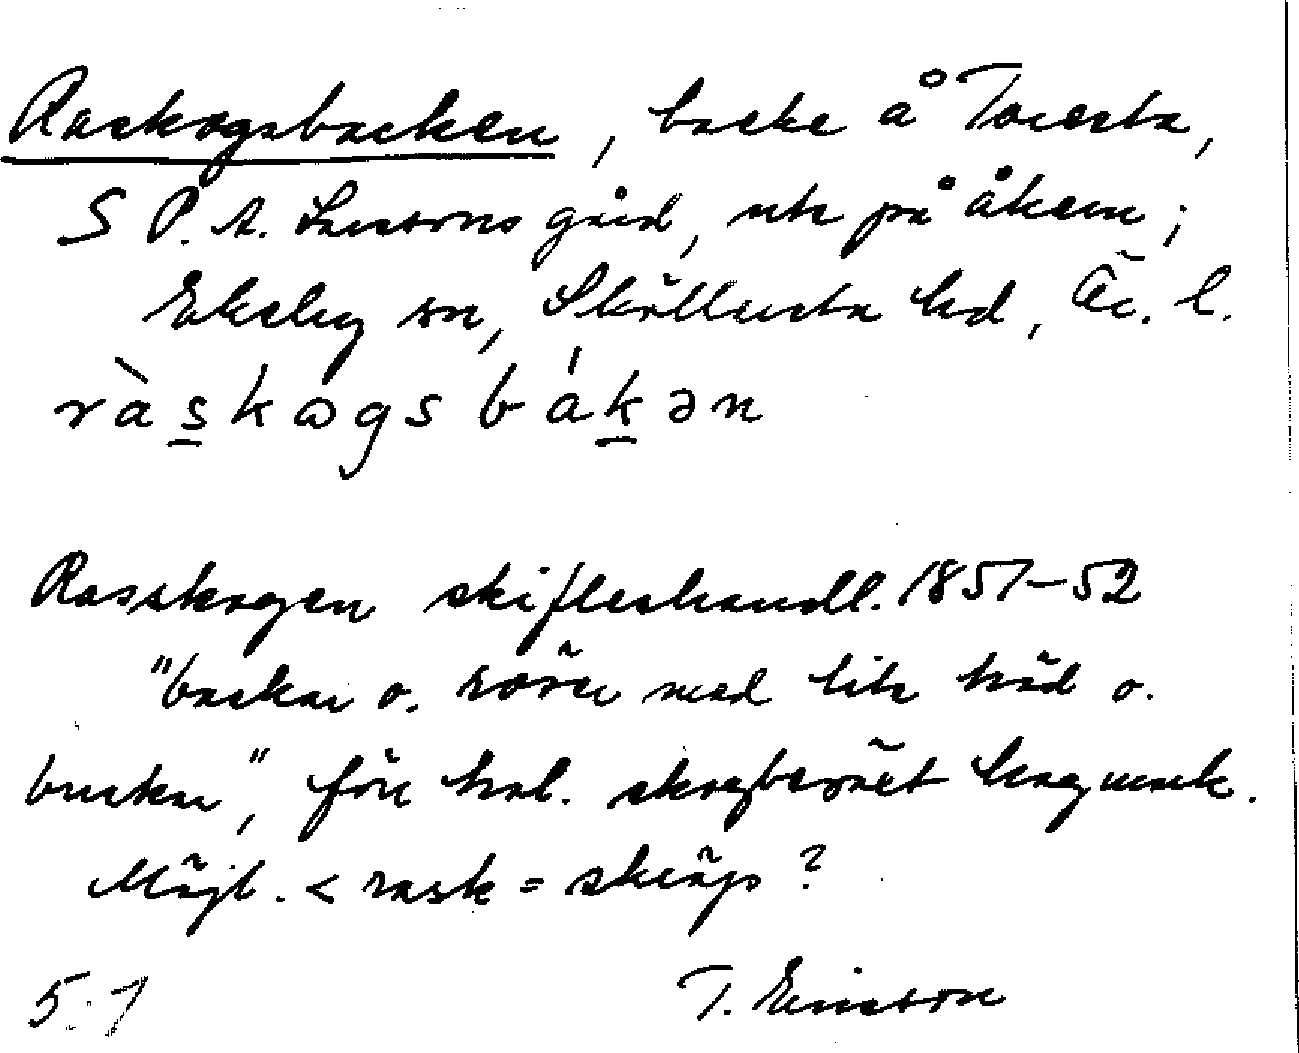 Raskogsbacken, backe å Toresta,
S P. A. Larssons gård, ute på åkern;
Ekeby sn, Sköllersta hd, Ör. l.
ràskogsbákən
Rasskogen skifteshandl. 1851–52
"backar o. rören med lite träd o.
buskar", förr trol. skogbeväxt hagmark.
Möjl. < rask = skräp?
5:1
T. Ericsson